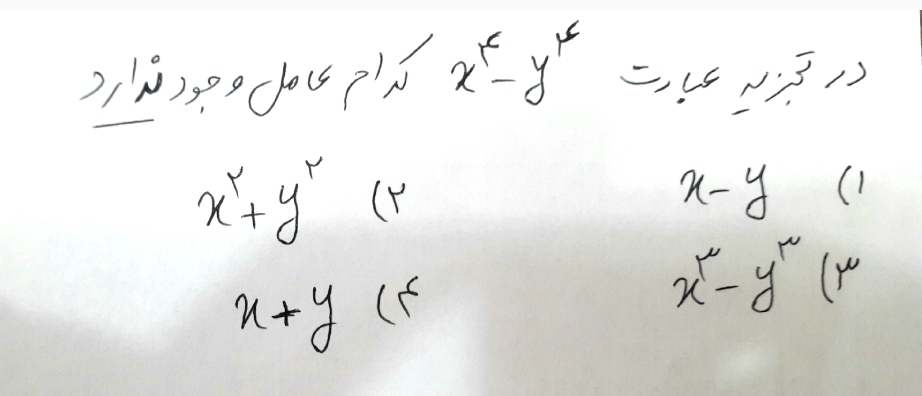 در تجزیه عبارت x^۴ - y^۴ کدام عامل وجود ندارد
۱) x - y ۲) x^۲ + y^۲
۳) x^۳ - y^۳ ۴) x + y